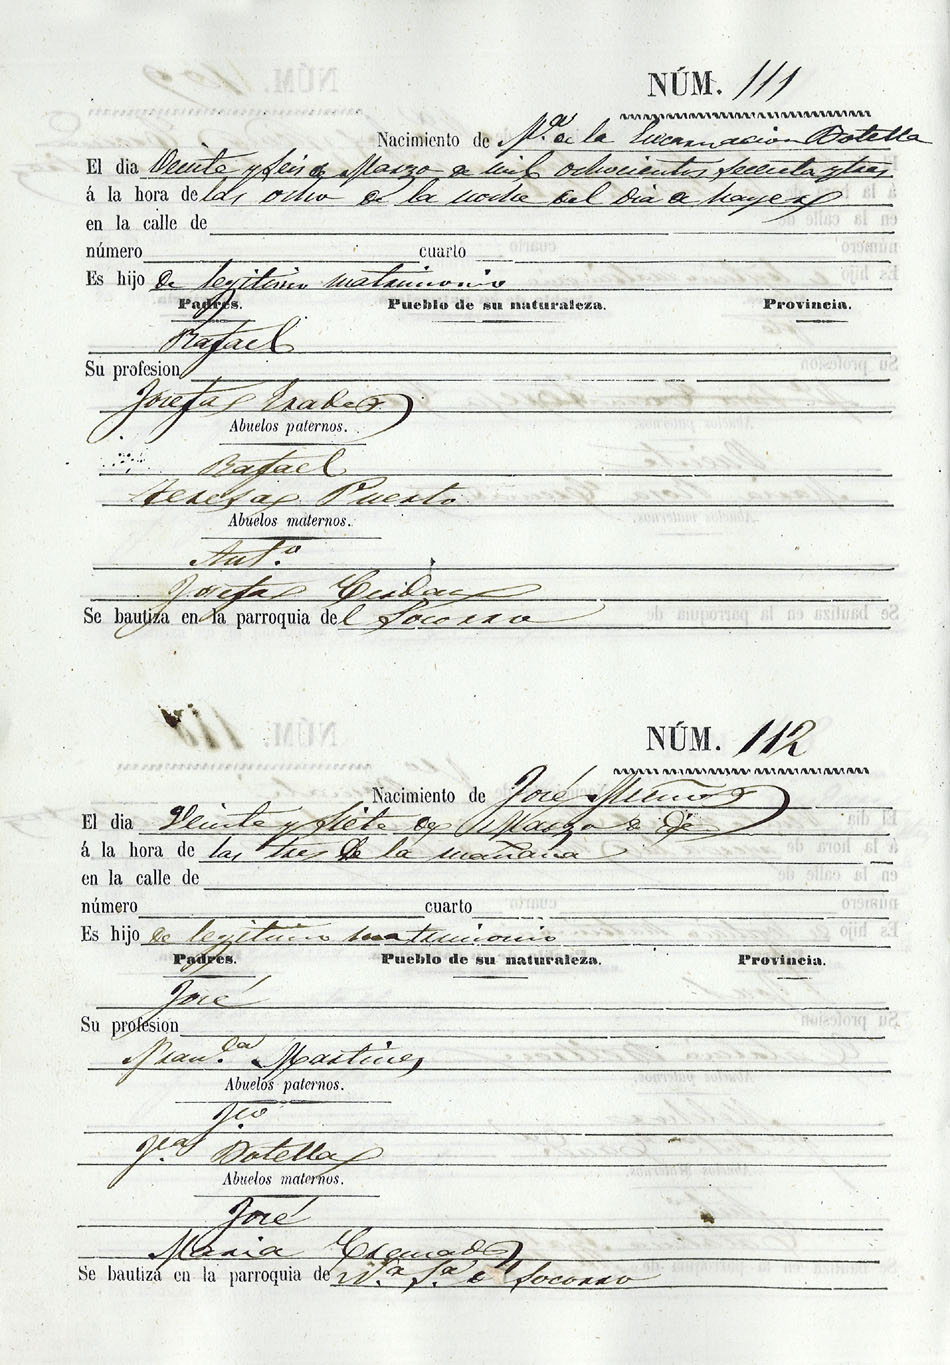 NÚM. 111
Nacimiento de M.ª de la Encarnacion Botella
El dia Veinte y seis de Marzo de mil ochocientos setenta y tres
á la hora de las ocho de la noche del dia de hayer
en la calle de
número cuarto
Es hijo de legitimo matrimonio
Padres. Pueblo de su naturaleza. Provincia.
Rafael
Su profesion
Josefa
Abuelos paternos.
Rafael
Teresa Puerto
Abuelos maternos.
Ant.º
Josefa
Se bautiza en la parroquia del Socorro
NÚM. 112
Nacimiento de José Muños
El dia Veinte y siete de Marzo de
á la hora de las tres de la mañana
en la calle de
número cuarto
Es hijo de legitimo matrimonio
Padres. Pueblo de su naturaleza. Provincia.
José
Su profesion
Fran.ca Martines
Abuelos paternos.
Botella
Abuelos maternos.
José
Maria Quemada
Se bautiza en la parroquia de N.ª S.ª del Socorro